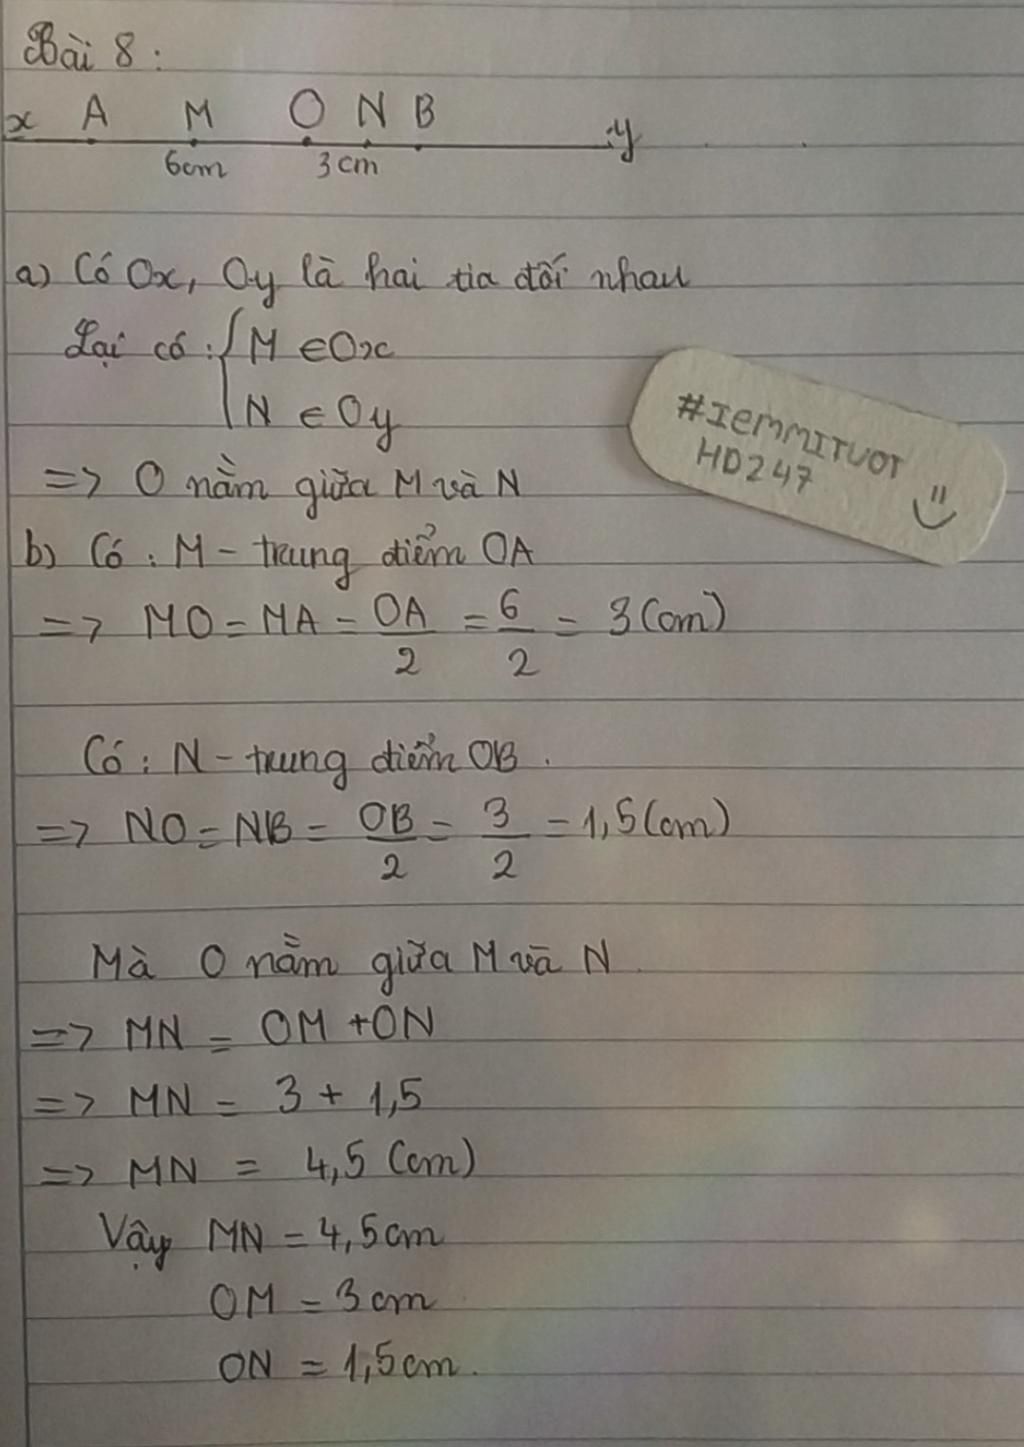 Bài 8 :
x A M O N B y
6cm 3cm
a) Có Ox, Oy là hai tia đối nhau
Lại có : { M ∈ Ox
N ∈ Oy
=> O nằm giữa M và N
#IEMMITUOT
HD247
b) Có : M - trung điểm OA
=> MO = MA = OA/2 = 6/2 = 3 (cm)
Có : N - trung điểm OB.
=> NO = NB = OB/2 = 3/2 = 1,5 (cm)
Mà O nằm giữa M và N
=> MN = OM + ON
=> MN = 3 + 1,5
=> MN = 4,5 (cm)
Vậy MN = 4,5cm
OM = 3cm
ON = 1,5cm.